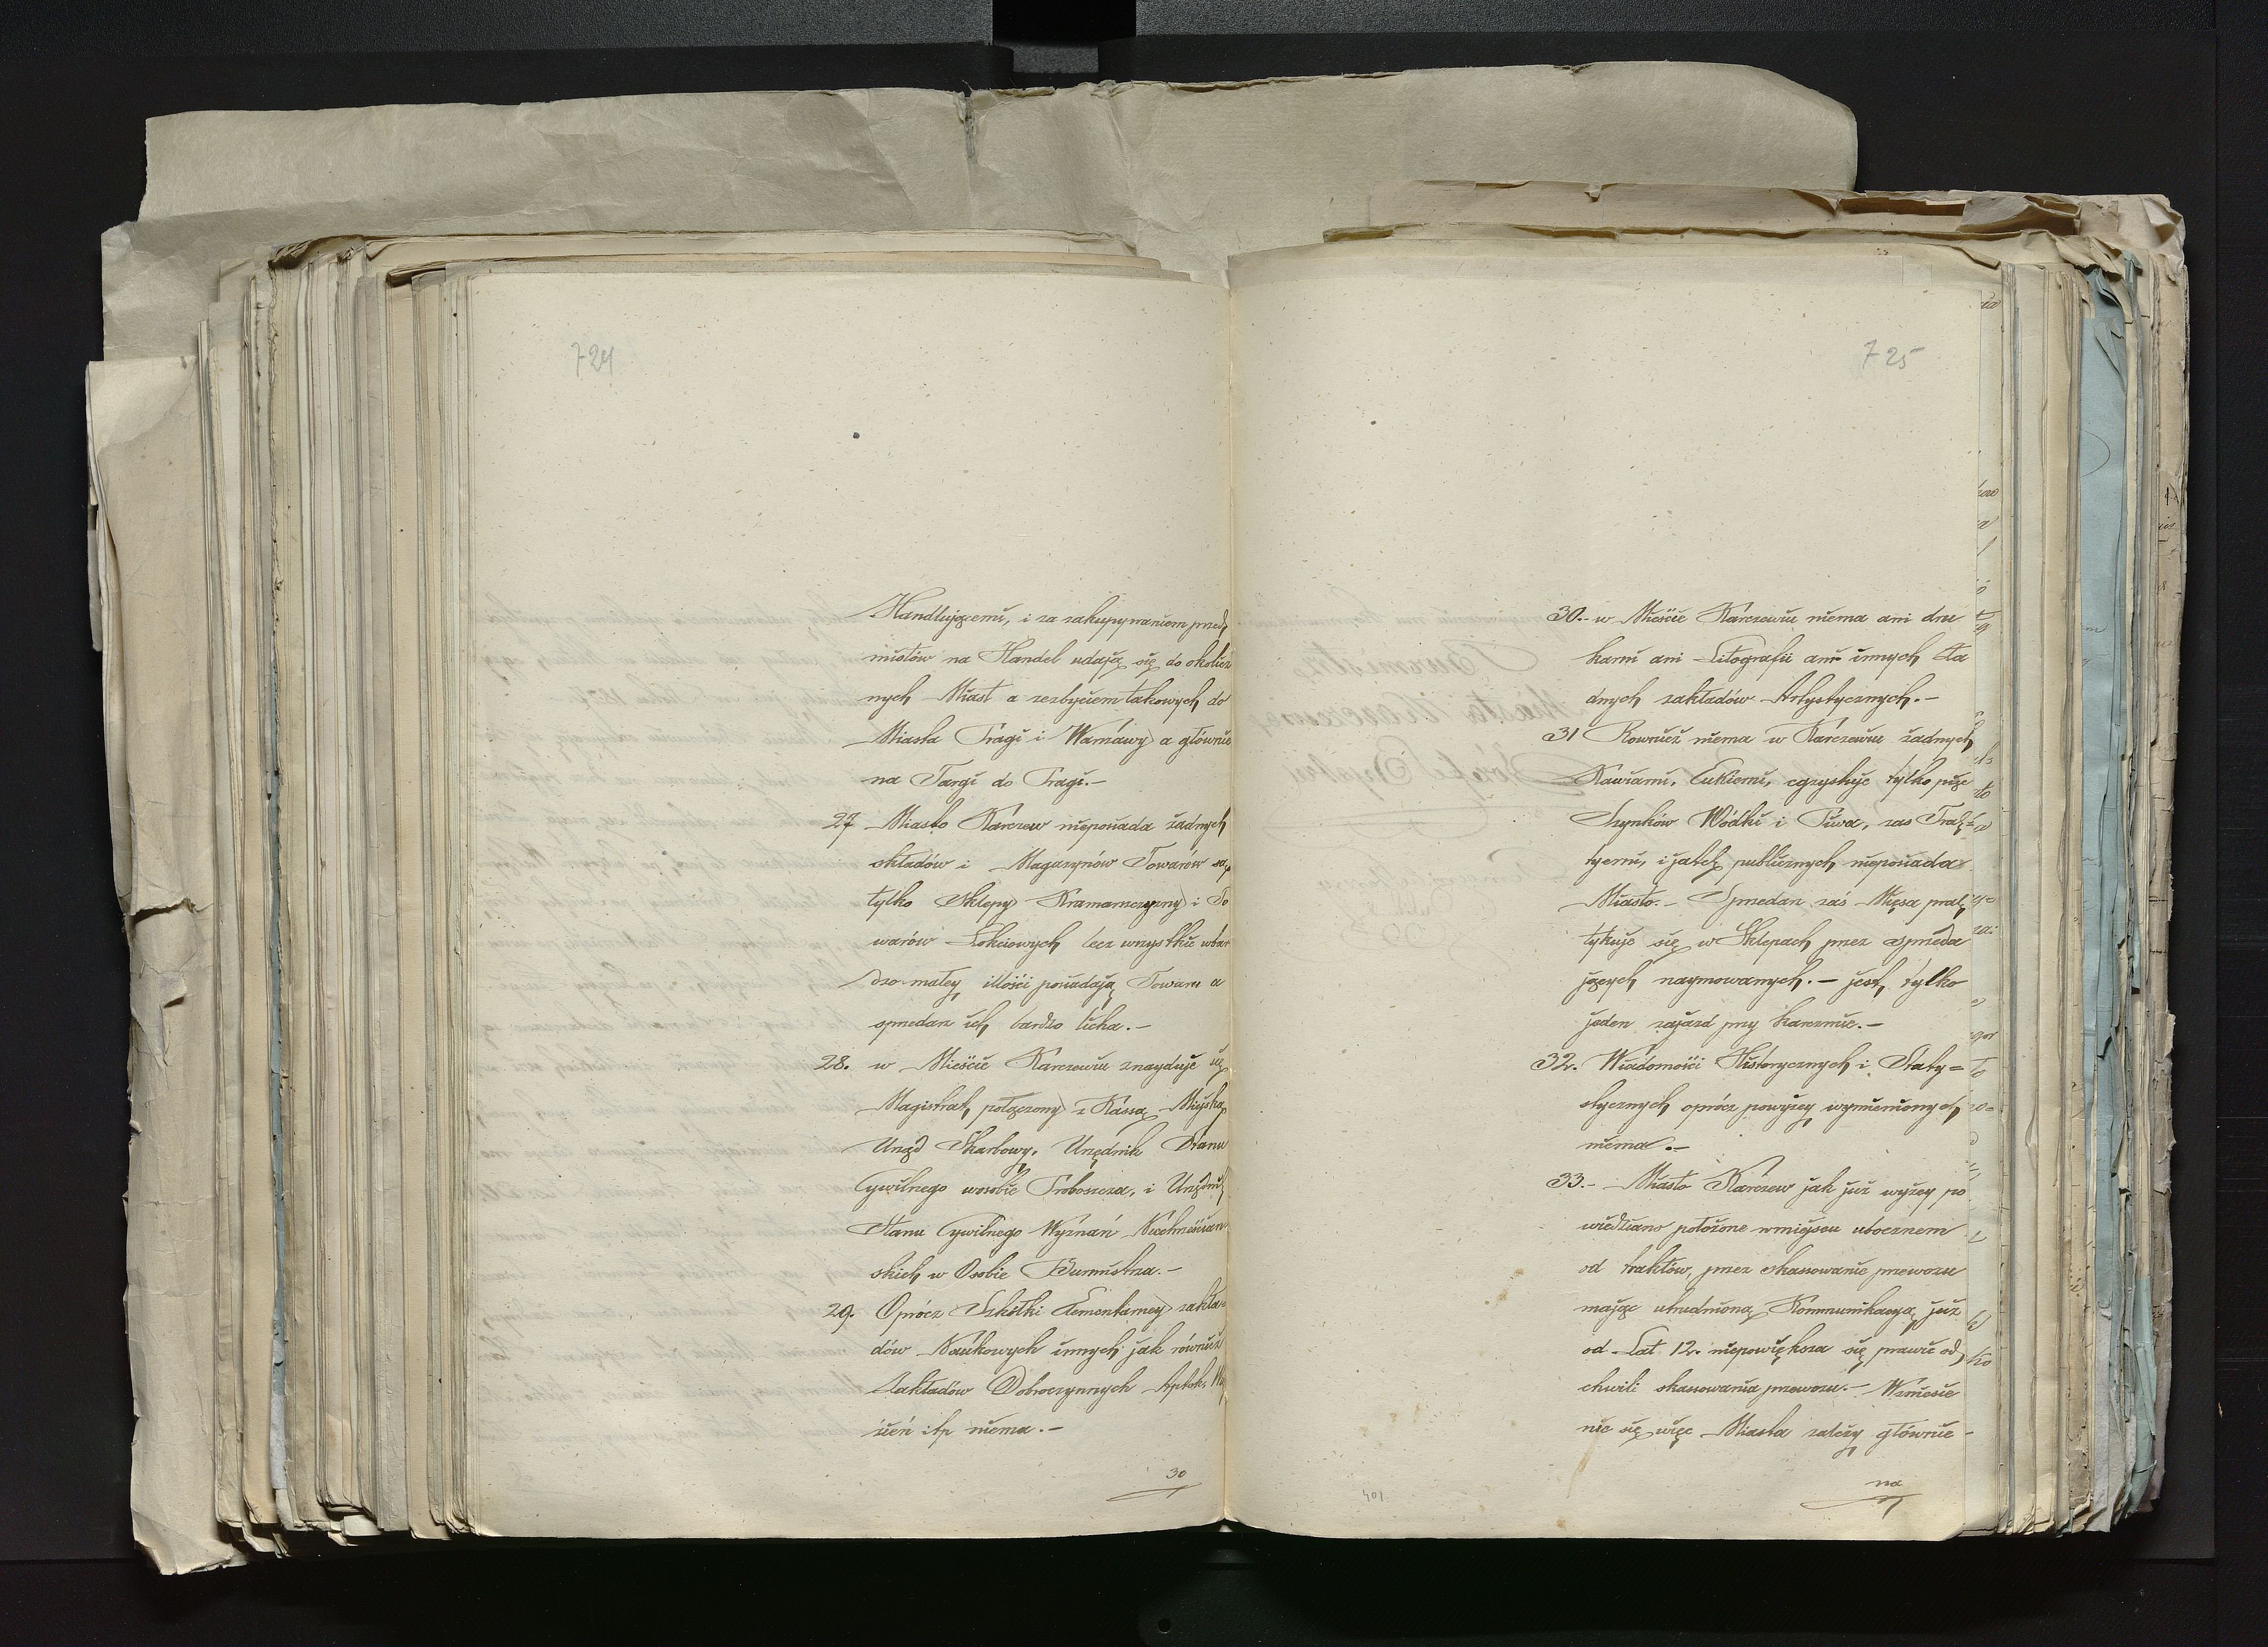 724
Handlującemi, i za zakupywaniem przed
miotów na Handel udają się do okolicz
nych Miast a zezbyciem takowych do
Miasta Pragi i Warszawy a głównie
na Targi do Pragi.-
27 Miasto Karczew nieposiada żadnych
składów i Magazynów Towarów są
tylko Sklepy Kramarszczyzny i To
warów Łokciowych lecz wszystkie wbar
dzo małey illości posiadają Towaru a
sprzedarz ich bardzo licha.-
28. w Mieście Karczewiu znayduje się
Magistrat, połączony z Kassą Mieyską
Urząd Skarbowy, Urzędnik Stanu
Cywilnego wosobie Proboszcza, i Urzędnik
Stanu Cywilnego Wyznań Niechrześcian
skich w Osobie Burmistrza.-
29. Oprócz Szkółki Elementarney zakła-
dów Naukowych innych jak również
Zakładów Dobroczynnych Aptek, Wię
zień itp niema.-
30
725
30.- w Mieście Karczewiu niema ani dru
karni ani Litografii ani innych ża
dnych zakładów Artystycznych.-
31 Rownież niema w Karczewiu żadnych
Kawiarni, Cukierni, egzystuje tylko pięc
Szynków Wódki i Piwa, zas Trak-
tyerni, i jatek publicznych nieposiada
Miasto.- Sprzedarz zaś Mięsa prak
tykuje się w Sklepach przez sprzeda
jących naymowanych.- jest tylko
jeden zajazd przy karczmie.-
32. Wiadomości Historycznych i Staty=
stycznych oprócz powyżey wymienionych
niema.-
33.- Miasto Karczew jak już wyżey po
wiedziano położone wmiejscu ubocznem
od traktów, przez skassowanie przewozu
mając utrudnioną Kommunikacyą, już
od Lat 12. niepowiększa się prawie od
chwili skassowania przewozu.- Wzniesie
nie się więc Miasta zależy głównie-
na
401